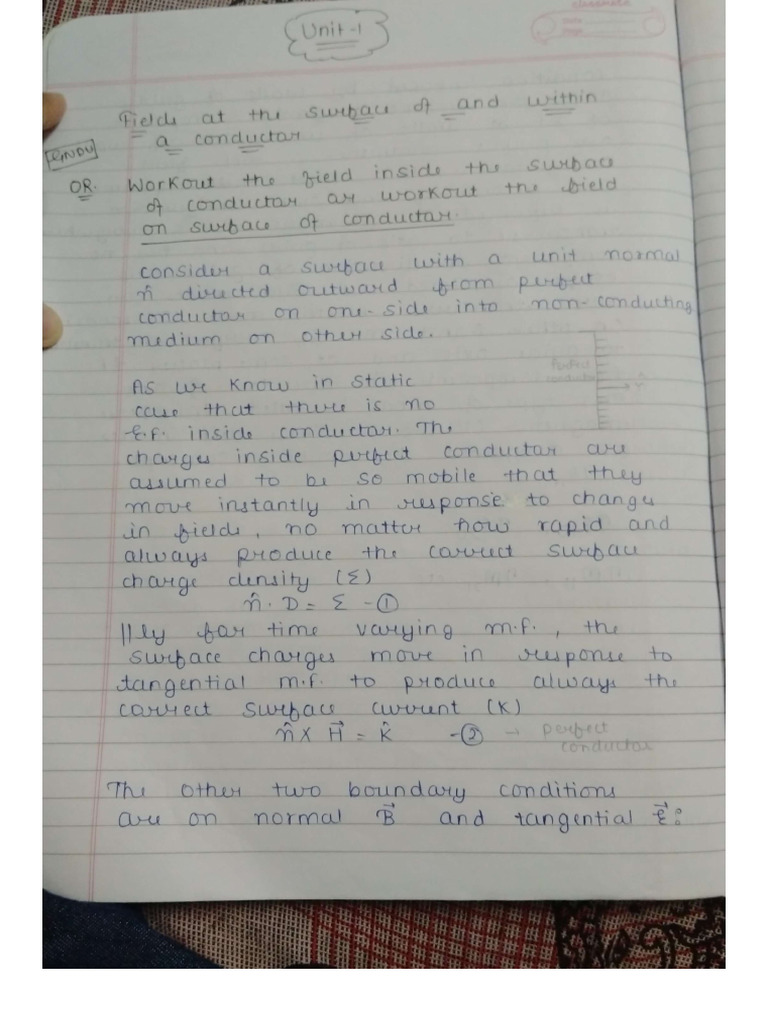 classmate
Date
Page
Unit-1
Fields at the surface of and within
a conductor
GNDU
OR. Workout the field inside the surface
of conductor or workout the field
on surface of conductor.
consider a surface with a unit normal
n̂ directed outward from perfect
conductor on one-side into non-conducting
medium on other side.
Perfect
conductor
n̂
As we know in static
case that there is no
E.f. inside conductor. The
charges inside perfect conductor are
assumed to be so mobile that they
move instantly in response to changes
in fields, no matter how rapid and
always produce the correct surface
charge density (Σ)
n̂ . D = Σ -①
||ly for time varying m.f., the
surface charges move in response to
tangential m.f. to produce always the
correct surface current (K)
n̂ x H⃗ = K̂ -② → perfect
conductor
The other two boundary conditions
are on normal B⃗ and tangential E⃗: